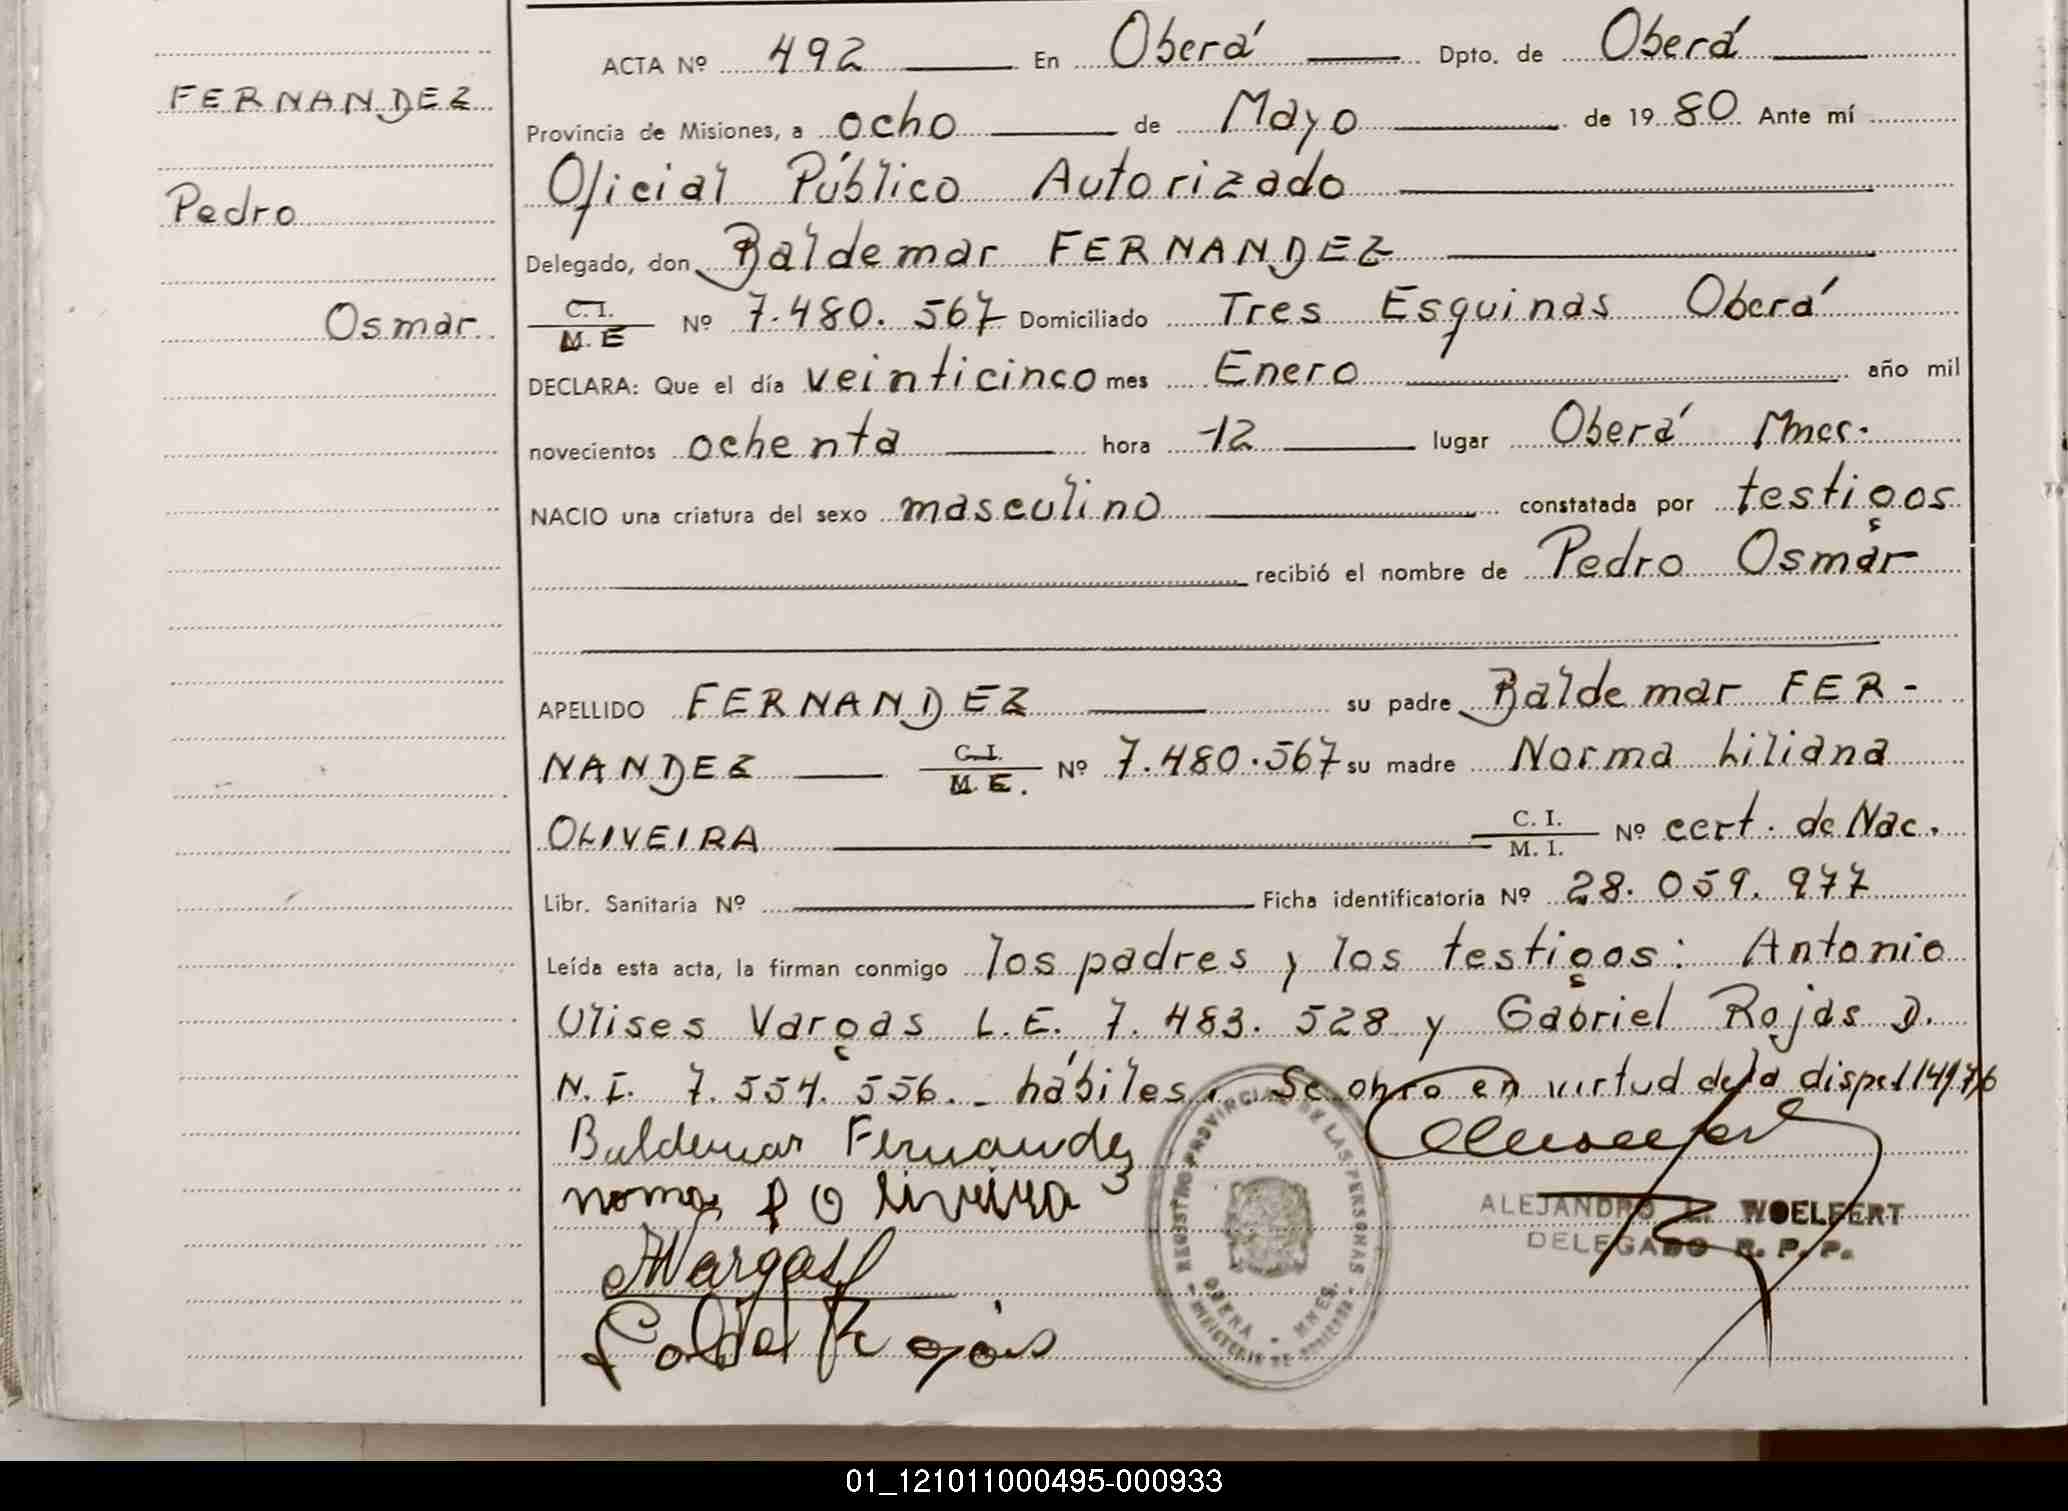 ACTA Nº 492 En Oberá Dpto. de Oberá
FERNANDEZ
Provincia de Misiones, a ocho de Mayo de 1980 Ante mí
Oficial Público Autorizado
Pedro
Delegado, don Baldemar FERNANDEZ
Osmar
C.I. / M.E Nº 7.480.567 Domiciliado Tres Esquinas Oberá
DECLARA: Que el día veinticinco mes Enero año mil
novecientos ochenta hora 12 lugar Oberá Mnes.
NACIO una criatura del sexo masculino constatada por testigos
recibió el nombre de Pedro Osmar
APELLIDO FERNANDEZ su padre Baldemar FER-
NANDEZ C.I. / M.E. Nº 7.480.567 su madre Norma Liliana
OLIVEIRA C. I. / M. I. Nº cert. de Nac.
Libr. Sanitaria Nº Ficha identificatoria Nº 28.059.977
Leída esta acta, la firman conmigo los padres y los testigos: Antonio
Ulises Vargas L.E. 7.483.528 y Gabriel Rojas D.
N.I. 7.554.556._ hábiles. Se obro en virtud de la
Baldemar Fernandez
Norma L Oliveira
AVargas
Rojas
REGISTRO PROVINCIAL DE LAS PERSONAS
OBERA - MNES.
MINISTERIO DE GOBIERNO
ALEJANDRO E. WOELFERT
DELEGADO R. P. P.
01_121011000495-000933